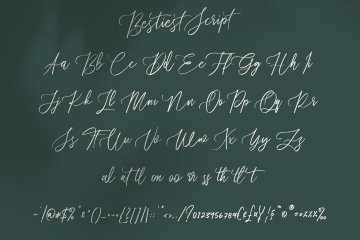 Bestiest Script
Aa Bb Cc Dd Ee Ff Gg Hh Ii
Jj Kk Ll Mm Nn Oo Pp Qq Rr
Ss Tt Uu Vv Ww Xx Yy Zz
al at tl on oo rr ss th tl t
0123456789